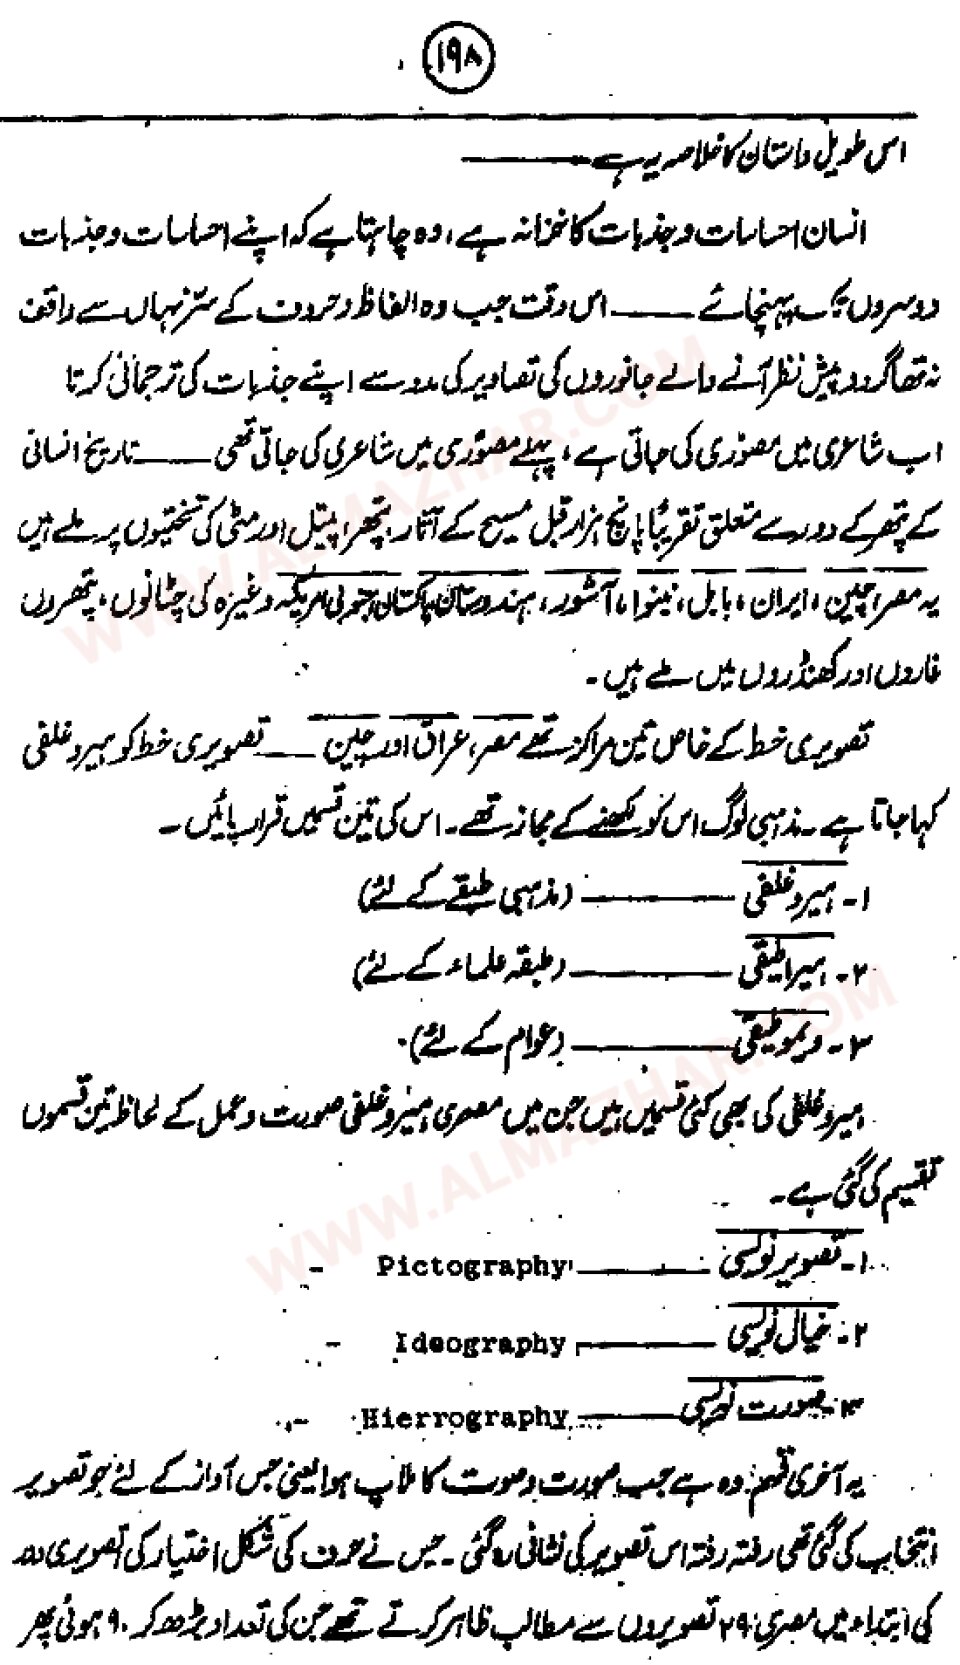 ۱۹۸
اس طویل داستان کا خلاصہ یہ ہے ———
انسان احساسات و جذبات کا خزانہ ہے، وہ چاہتا ہے کہ اپنے احساسات و جذبات
دوسروں تک پہنچائے —— اس وقت جب وہ الفاظ و حروف کے سترنہاں سے واقف
نہ تھا گرد و پیش نظر آنے والے جانوروں کی تصاویر کی مدد سے اپنے جذبات کی ترجمانی کرتا
اب شاعری میں مصوری کی جاتی ہے، پہلے مصوری میں شاعری کی جاتی تھی —— تاریخ انسانی
کے پتھر کے دور سے متعلق تقریباً پانچ ہزار قبل مسیح کے آثار، پتھر، پیتل اور مٹی کی تختیوں پر ملے ہیں
یہ مصر، چین، ایران، بابل، نینوا، آشور، ہندوستان، پاکستان، جنوبی امریکہ وغیرہ کی چٹانوں، پتھروں
غاروں اور کھنڈروں میں ملے ہیں۔
تصویری خط کے خاص تین مراکز تھے مصر، عراق اور چین —— تصویری خط کو ہیروغلفی
کہا جاتا ہے۔ مذہبی لوگ اس کو لکھنے کے مجاز تھے۔ اس کی تین قسمیں قرار پائیں۔
۱۔ ہیروغلفی ——— (مذہبی طبقے کے لئے)
۲۔ ہیراطیقی ——— (طبقہ علماء کے لئے)
۳۔ دیموطیقی ——— (عوام کے لئے)۔
ہیروغلفی کی بھی کئی قسمیں ہیں جن میں مصری ہیروغلفی صورت و عمل کے لحاظ تین قسموں
تقسیم کی گئی ہے۔
۱۔ تصویر نویسی ——— Pictography -
۲۔ خیال نویسی ——— Ideography -
۳۔ صورت نویسی ——— Hierrography -
یہ آخری قسم وہ ہے جب صورت و صوت کا ملاپ ہوا یعنی جس آواز کے لئے جو تصویر
انتخاب کی گئی تھی رفتہ رفتہ اس تصویر کی نشانی رہ گئی۔ جس نے حرف کی شکل اختیار کی تصویری دور
کی ابتداء میں مصری ۲۹ تصویروں سے مطالب ظاہر کرتے تھے جن کی تعداد بڑھ کر ۹۰ ہوئی پھر
WWW.ALMAZHAR.COM
WWW.ALMAZHAR.COM